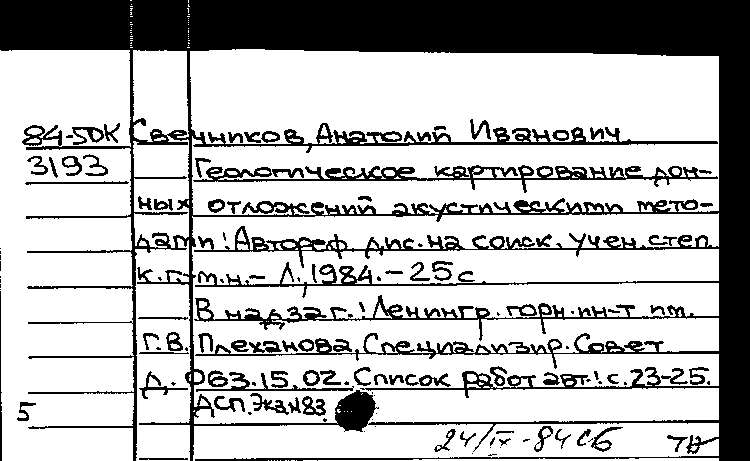 84-5ДК Свечников, Анатолий Иванович.
3193 Геологическое картирование дон-
ных отложений акустическими мето-
дами: Автореф. дис. на соиск. учен. степ.
к. г.-м. н. - Л., 1984. - 25 с.
В надзаг.: Ленингр. горн. ин-т им.
Г. В. Плеханова, Специализир. Совет
Д. 063.15.02. Список работ авт.: с. 23-25.
5 ДСП. Экз. N83
24/IX-84 СБ